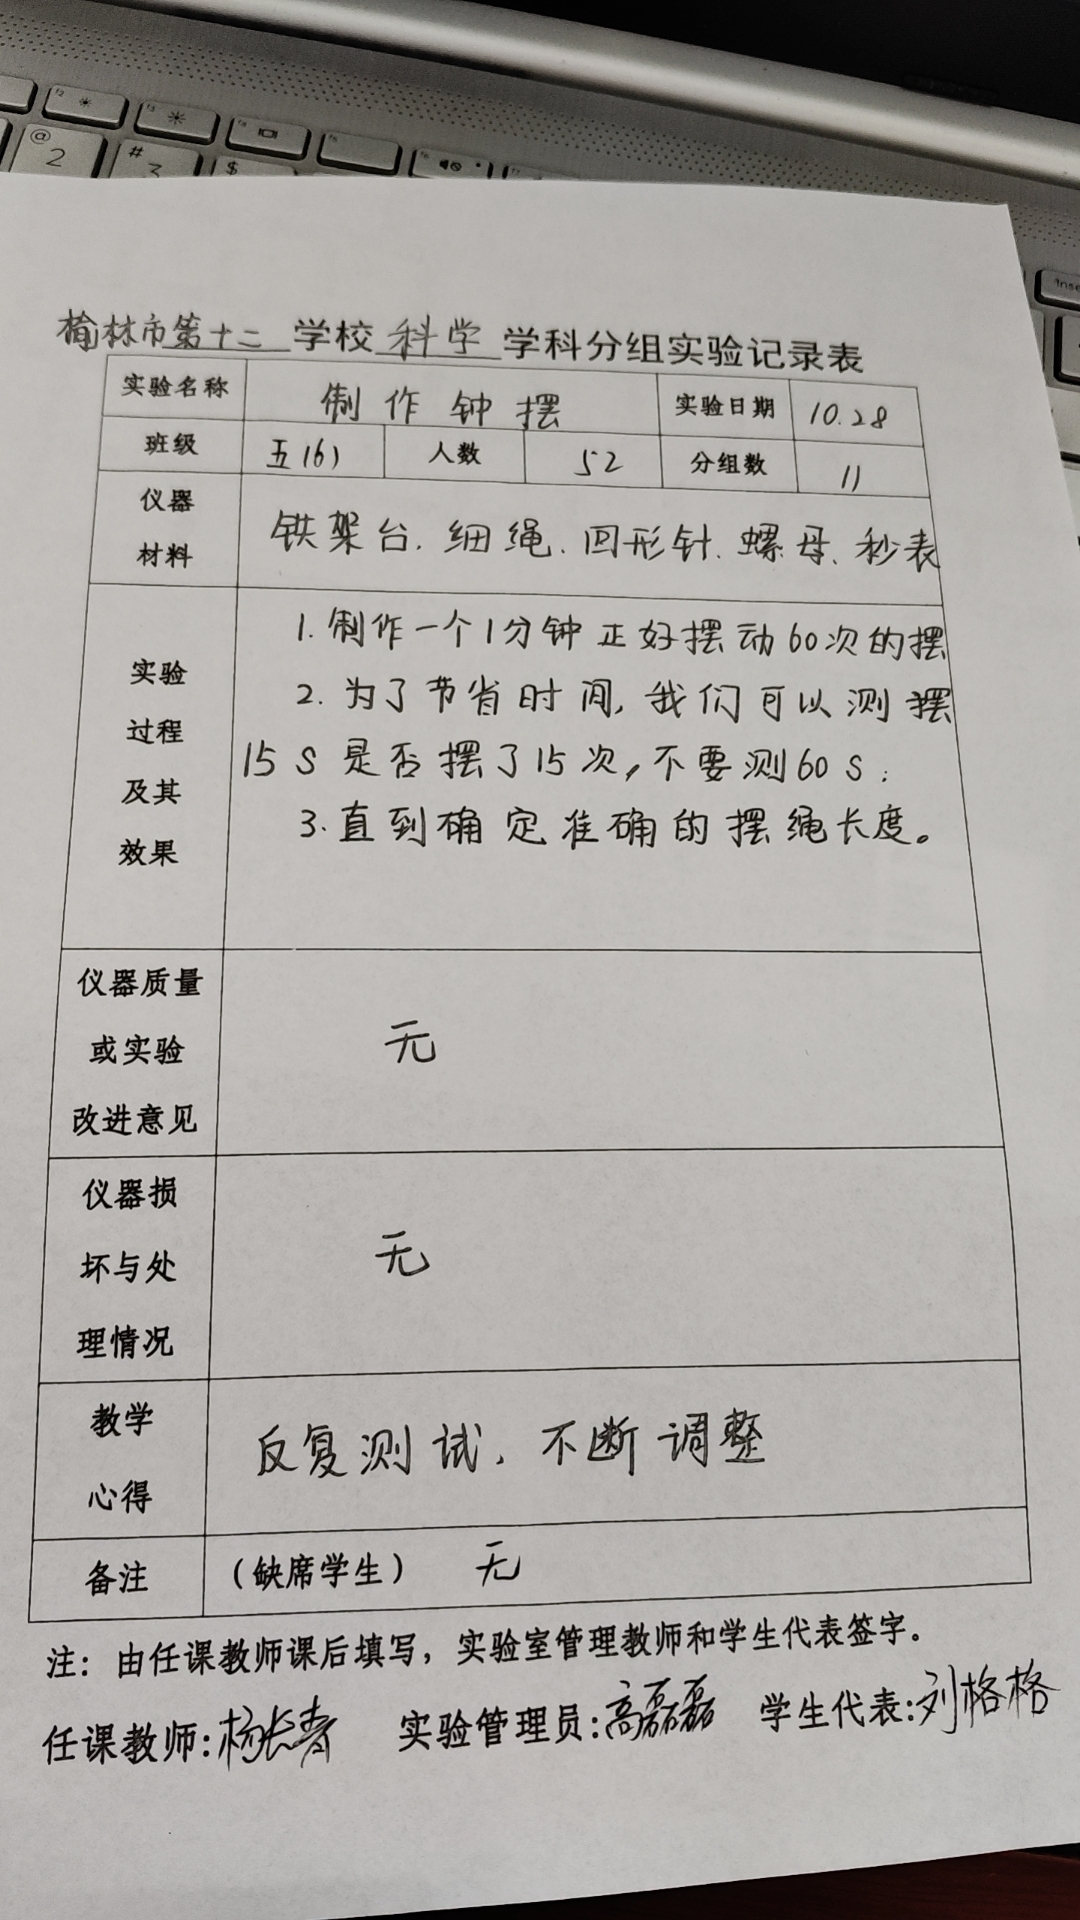 @
2
#
3
$
Inse
榆林市第十二学校科学学科分组实验记录表
实验名称 制作钟摆 实验日期 10.28
班级 五(6) 人数 52 分组数 11
仪器
材料
铁架台、细绳、回形针、螺母、秒表
实验
过程
及其
效果
1.制作一个1分钟正好摆动60次的摆
2.为了节省时间,我们可以测摆
15S是否摆了15次,不要测60S;
3.直到确定准确的摆绳长度。
仪器质量
或实验
改进意见
无
仪器损
坏与处
理情况
无
教学
心得
反复测试、不断调整
备注 (缺席学生) 无
注:由任课教师课后填写,实验室管理教师和学生代表签字。
任课教师:杨长春 实验管理员:高磊磊 学生代表:刘格格